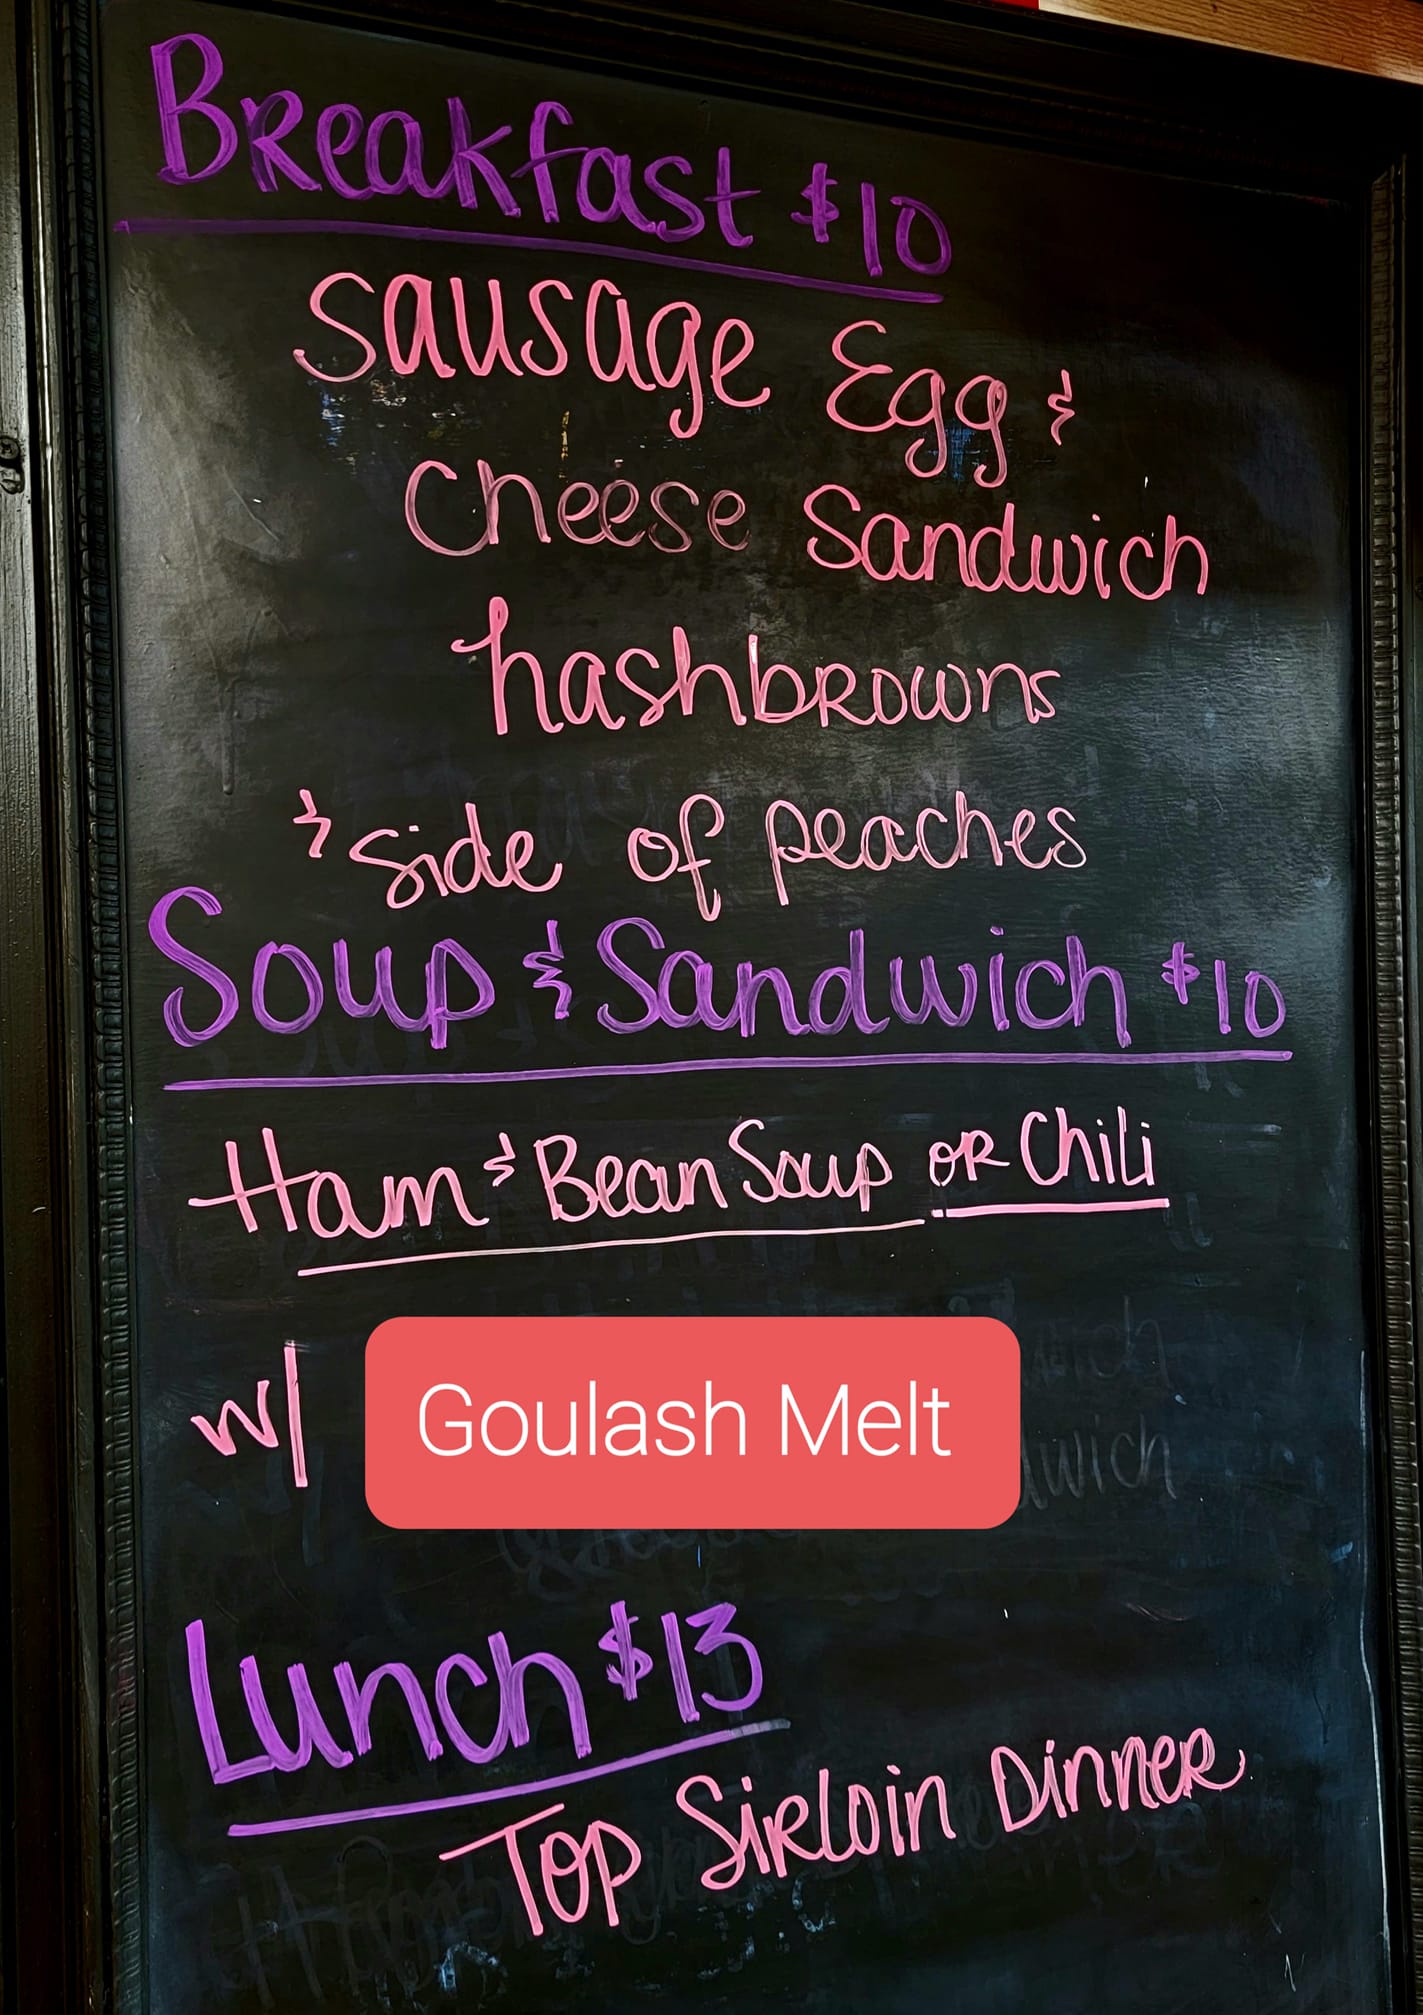 Breakfast $10
Sausage Egg &
Cheese Sandwich
hashbrowns
& side of peaches
Soup & Sandwich $10
Ham & Bean Soup or Chili
w/ Goulash Melt
Lunch $13
Top Sirloin Dinner